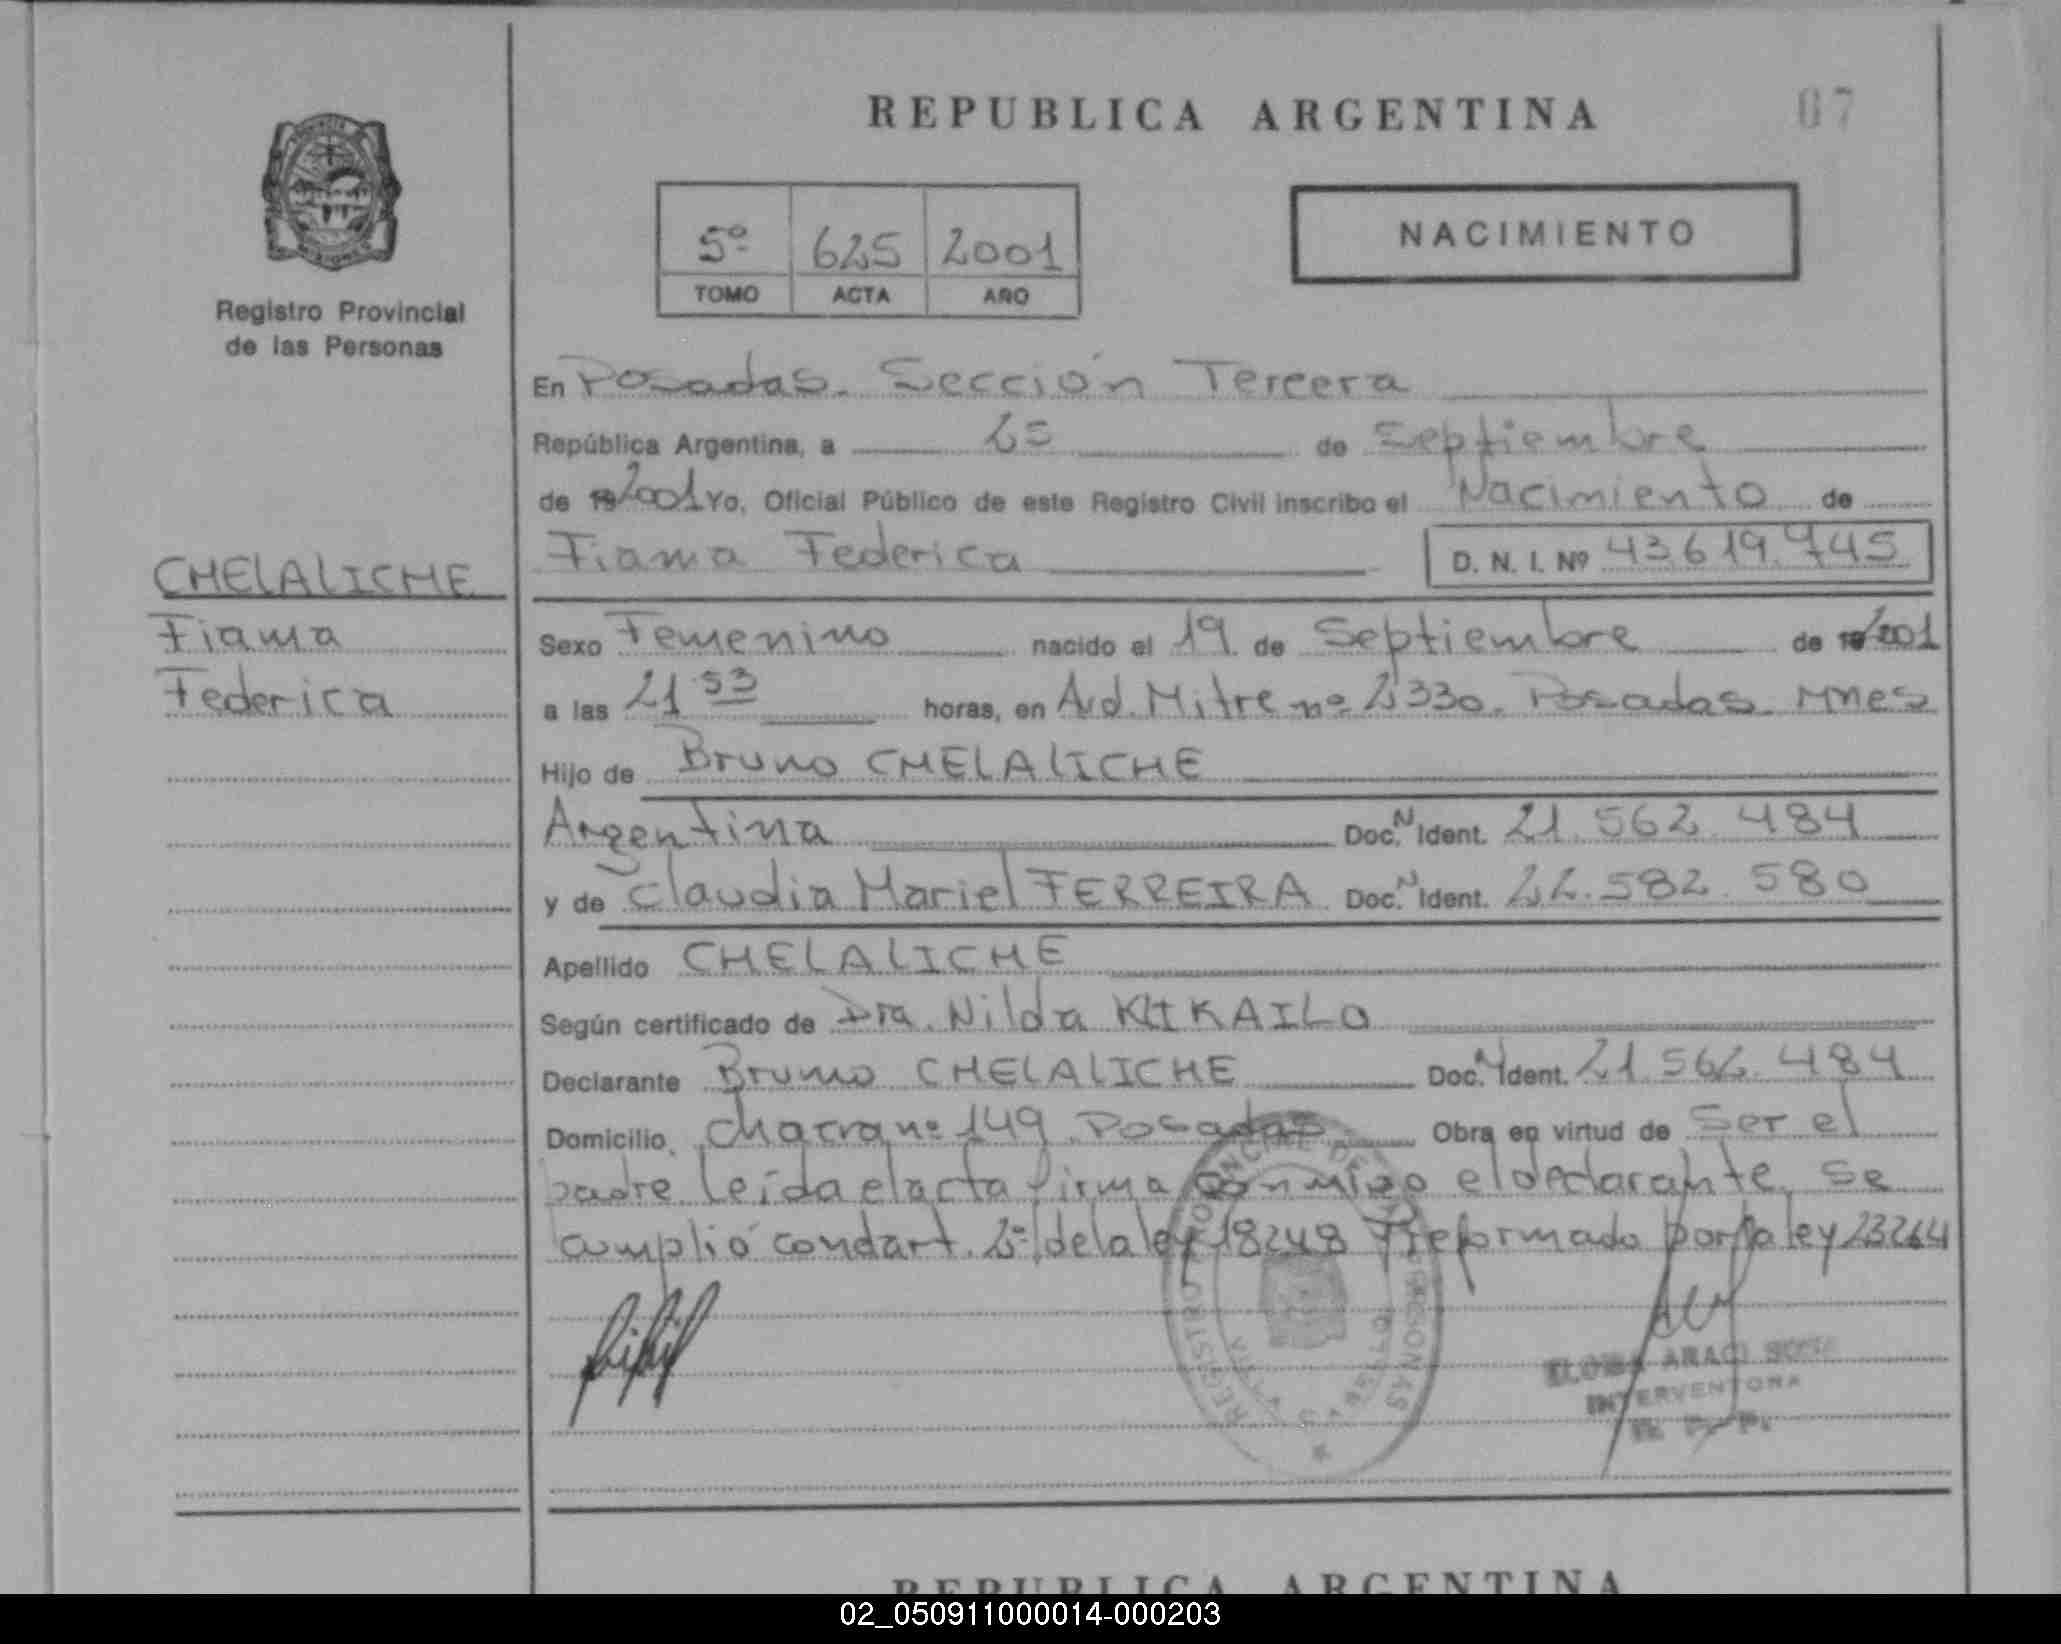 REPUBLICA ARGENTINA
67
5º 625 2001
TOMO ACTA AÑO
NACIMIENTO
Registro Provincial
de las Personas
En Posadas. Sección Tercera
República Argentina, a 25 de Septiembre
de 19 2001 Yo, Oficial Público de este Registro Civil inscribo el Nacimiento de
Fiama Federica D. N. I. Nº 43.619.745
CHELALICHE
Fiama
Federica
Sexo Femenino nacido el 19 de Septiembre de 19 2001
a las 21 53 horas, en Avd. Mitre nº 2330. Posadas. Mnes
Hijo de Bruno CHELALICHE
Argentina Doc. N Ident. 21.562.484
y de Claudia Mariel FERREIRA Doc. N Ident. 22.582.580
Apellido CHELALICHE
Según certificado de Dra. Nilda
Declarante Bruno CHELALICHE Doc. N Ident. 21.562.484
Domicilio, chacra nº 149. Posadas Obra en virtud de ser el
padre. leída el acta firma conmigo el declarante. Se
cumplió con el art. 2º de la ley 18248 reformado por la ley 23264
REGISTRO PROVINCIAL DE LAS PERSONAS
ARACI
INTERVENTORA
R. P. P.
REPUBLICA ARGENTINA
02_050911000014-000203